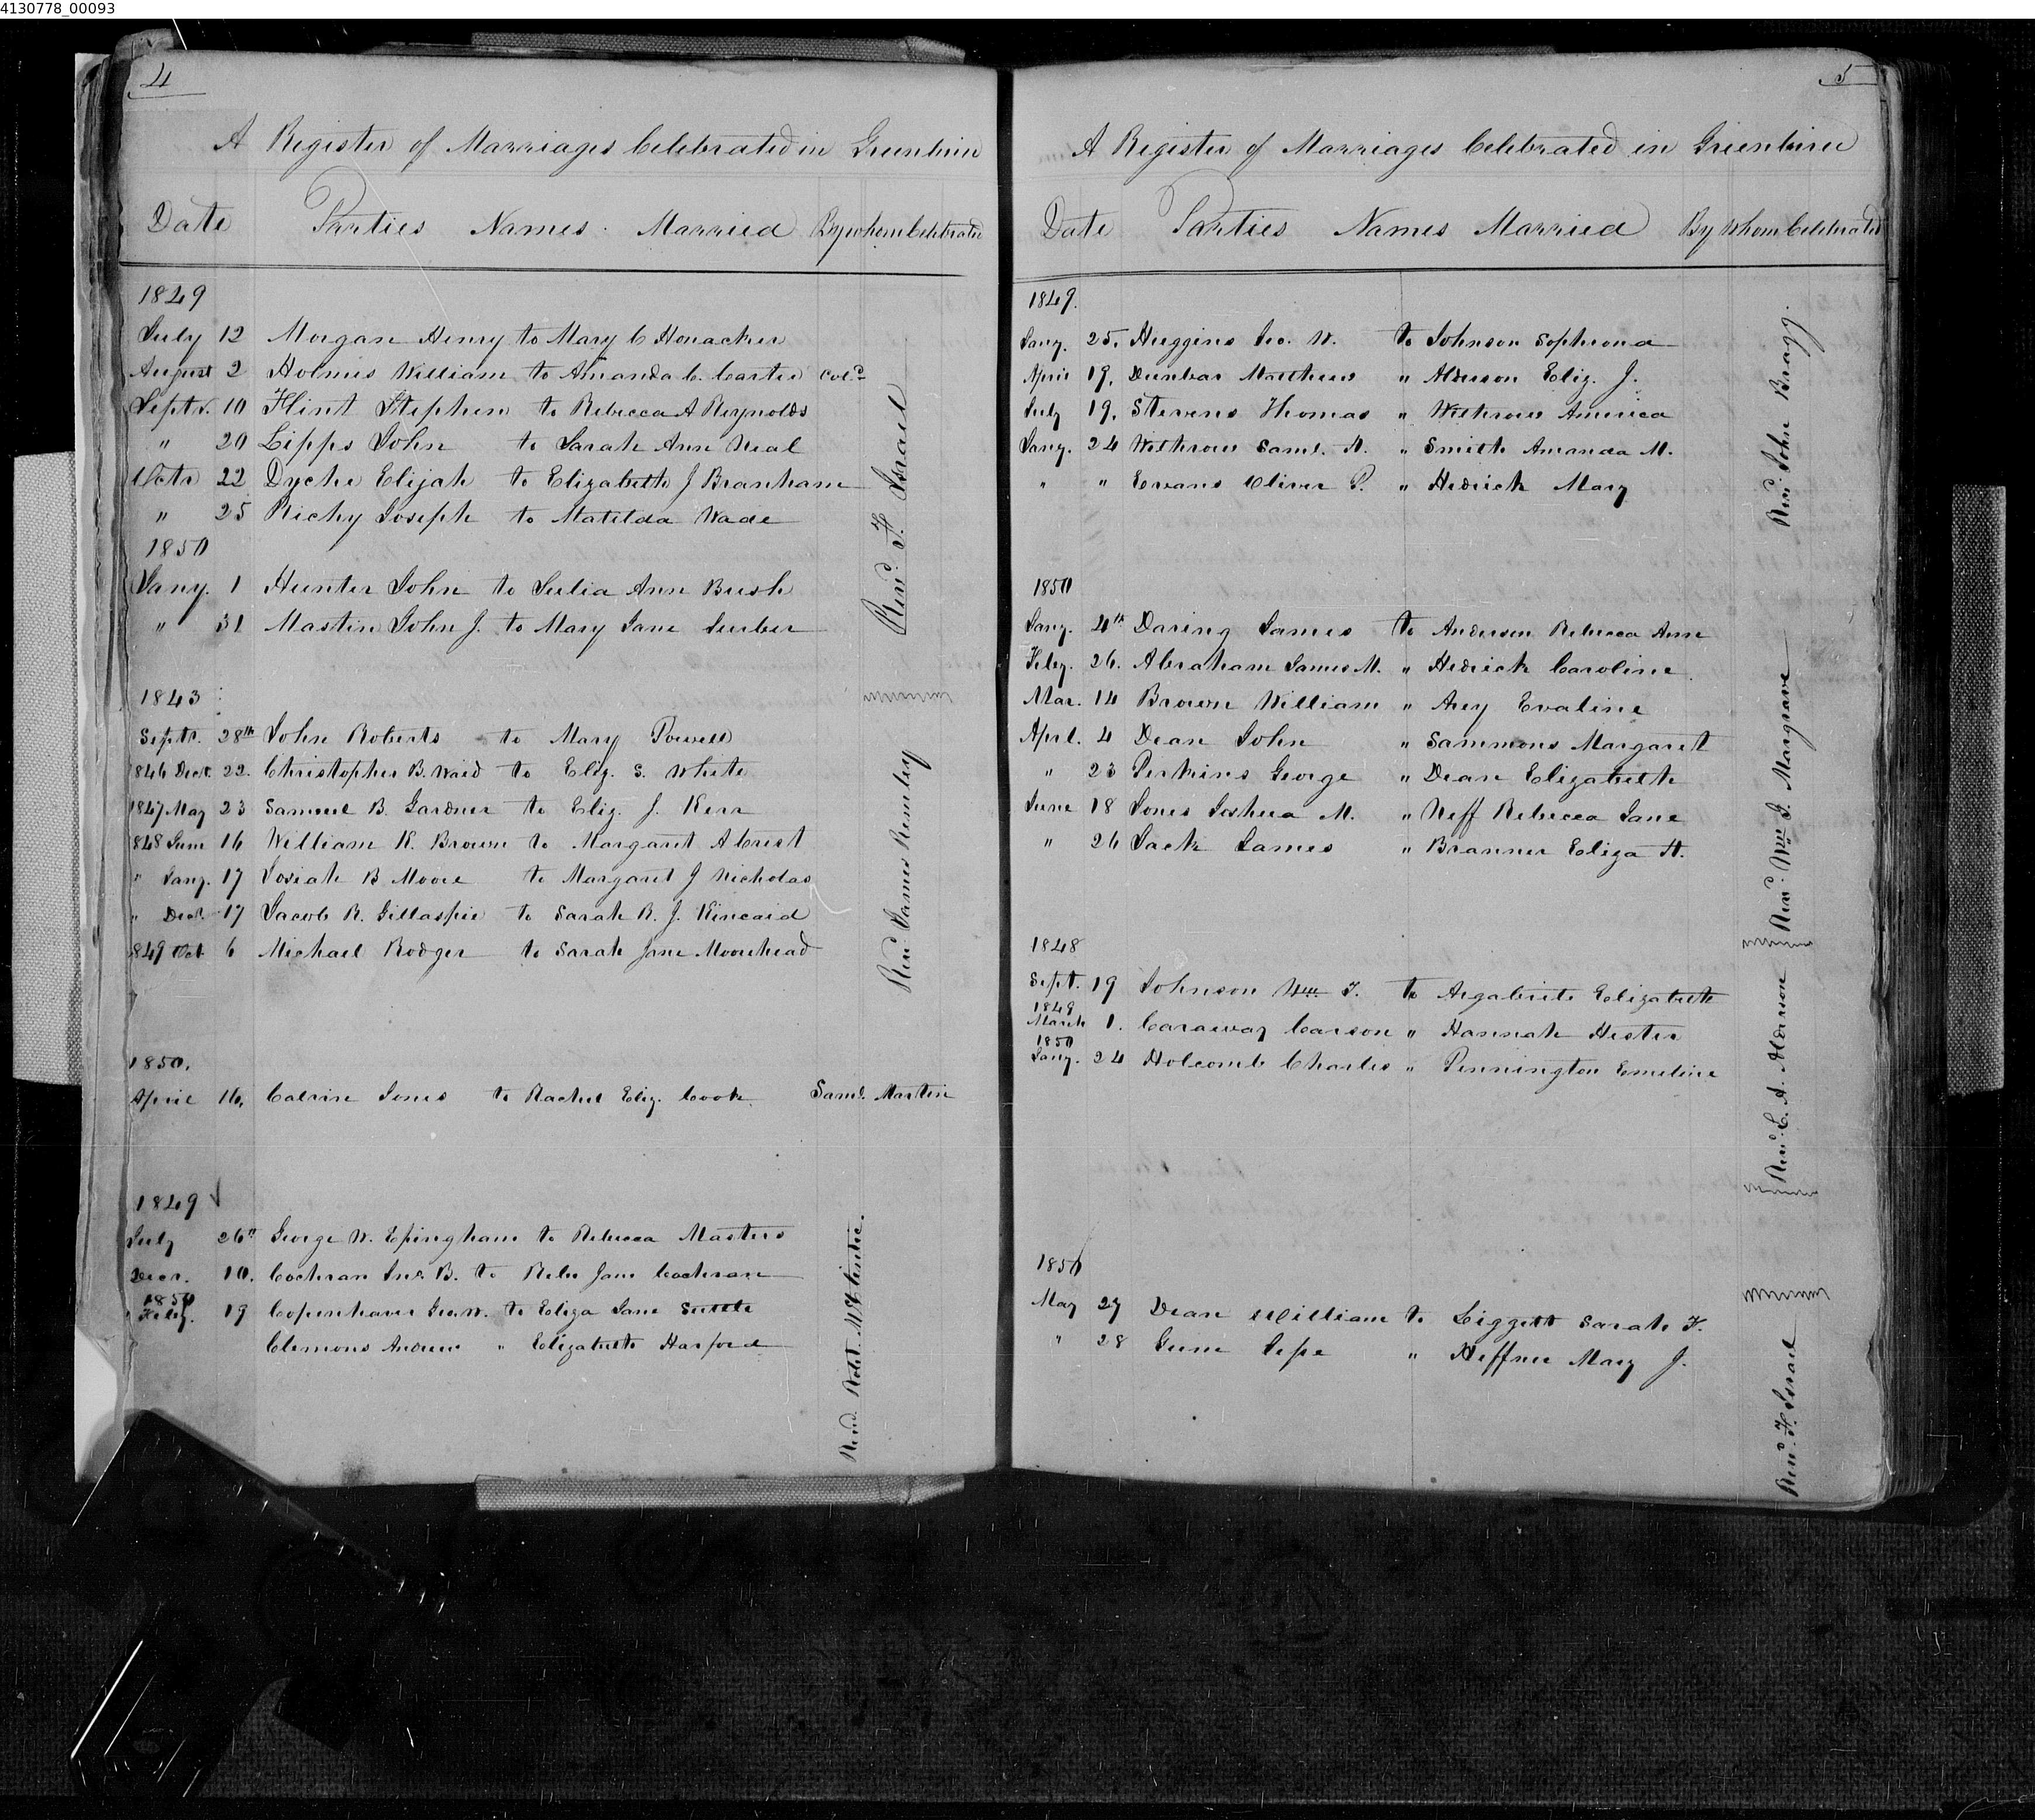 4130778_00093
4
A Register of Marriages Celebrated in Greenbrier
Date Parties Names Married By whom Celebrated
1849
July 12 Morgan Henry to Mary C Honacker
August 2 Holmes William to Amanda C. Carter Cold
Septr. 10 Flint Stephen to Rebecca A Reynolds
" 20 Lipps John to Sarah Ann Neal
Octr 22 Dyche Elijah to Elizabeth J Branham
" 25 Richy Joseph to Matilda Wade
1850
Jany. 1 Hunter John to Julia Ann Bush
" 31 Mastin John J. to Mary Jane Surber
Revd. F. Israel
1843
Septr. 28th John Roberts to Mary Powell
1846 Decr. 22. Christopher B. Ward to Eliz. S. White
1847 May 23 Samuel B. Gardner to Eliz. J. Kerr
848 June 16 William K. Brown to Margaret A Crist
" Jany. 17 Josiah B Moore to Margaret J Nicholas
" Decr. 17 Jacob R. Gillaspie to Sarah R. J. Kincaid
849 Oct 6 Michael Rodger to Sarah Jane Moorehead
Revd. James Remley
1850.
April 16. Calvin Jones to Rachel Eliz. Cook Saml. Martin
1849
July 26th George W. Epingham to Rebecca Masters
Decr. 10. Cochran Jno. B. to Rebe Jane Cochran
1850
Feby. 19 Copenhaver Geo. W. to Eliza Jane Suttle
Clemons Andrew " Elizabeth Harford
Revd. Robt.
5
A Register of Marriages Celebrated in Greenbrier
Date Parties Names Married By Whom Celebrated
1849.
Jany. 25. Huggins Geo. W. to Johnson Sophrona
April 19. Dunbar Matthew " Alderson Eliz. J.
July 19. Stevens Thomas " Withrow America
Jany. 24 Withrow Saml. H. " Smith Amanda M.
" " Evans Oliver P. " Hedrick Mary
Revd. John Bragg.
1850
Jany. 4th Daring James to Anderson Rebecca Ann
Feby. 26. Abraham James M. " Hedrick Caroline
Mar. 14 Brown William " Arey Evaline
Aprl. 4 Dean John " Sammons Margaret
" 23 Perkins George " Dean Elizabeth
June 18 Jones Joshua M. " Neff Rebecca Jane
" 26 Jack James " Branner Eliza H.
Revd. Wm G. Margrave
1848
Sept. 19 Johnson Wm F. to Argabrite Elizabeth
1849
March 1. Caraway Carson " Hannah Hester
1850
Jany. 24 Holcomb Charles " Pennington Emeline
Revd. L. A. Alderson
1850
May 27 Dean William to Liggett Sarah F.
" 28 Gum Jesse " Heffner Mary J.
Revd. F. Israel